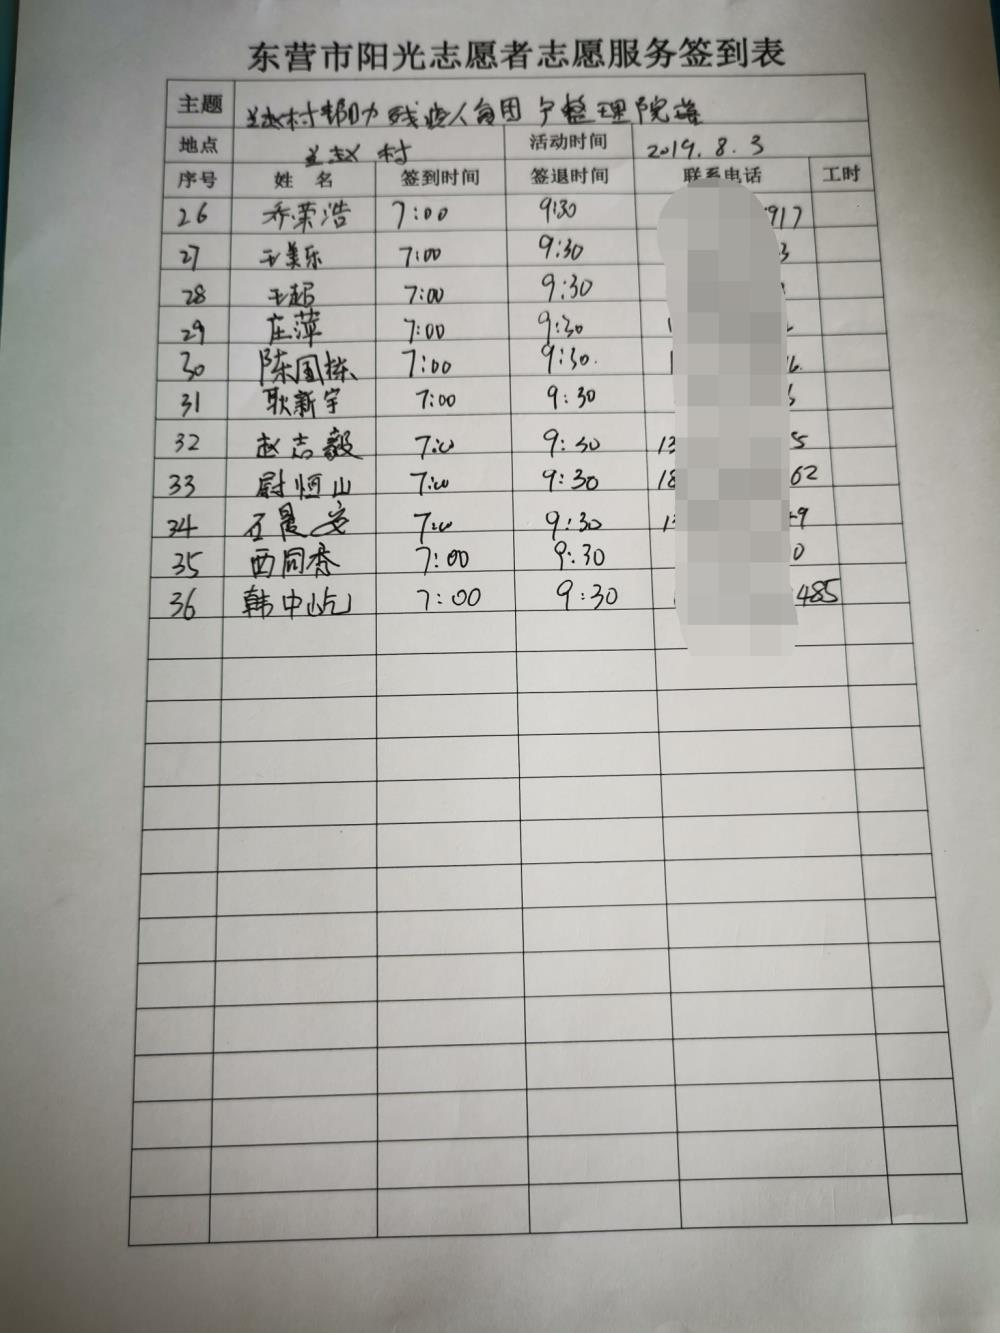 东营市阳光志愿者志愿服务签到表
主题 赵村帮助残疾人贫困户整理院落
地点 赵村 活动时间 2019.8.3
序号 姓名 签到时间 签退时间 联系电话 工时
26 乔荣浩 7:00 9:30 917
27 王美乐 7:00 9:30 3
28 王超 7:00 9:30
29 庄萍 7:00 9:30
30 陈国栋 7:00 9:30. 6.
31 耿新宇 7:00 9:30
32 赵志毅 7:00 9:30 13 5
33 尉恒山 7:00 9:30 18 62
34 石晨安 7:00 9:30 9
35 西同香 7:00 9:30 0
36 韩中屹 7:00 9:30 485